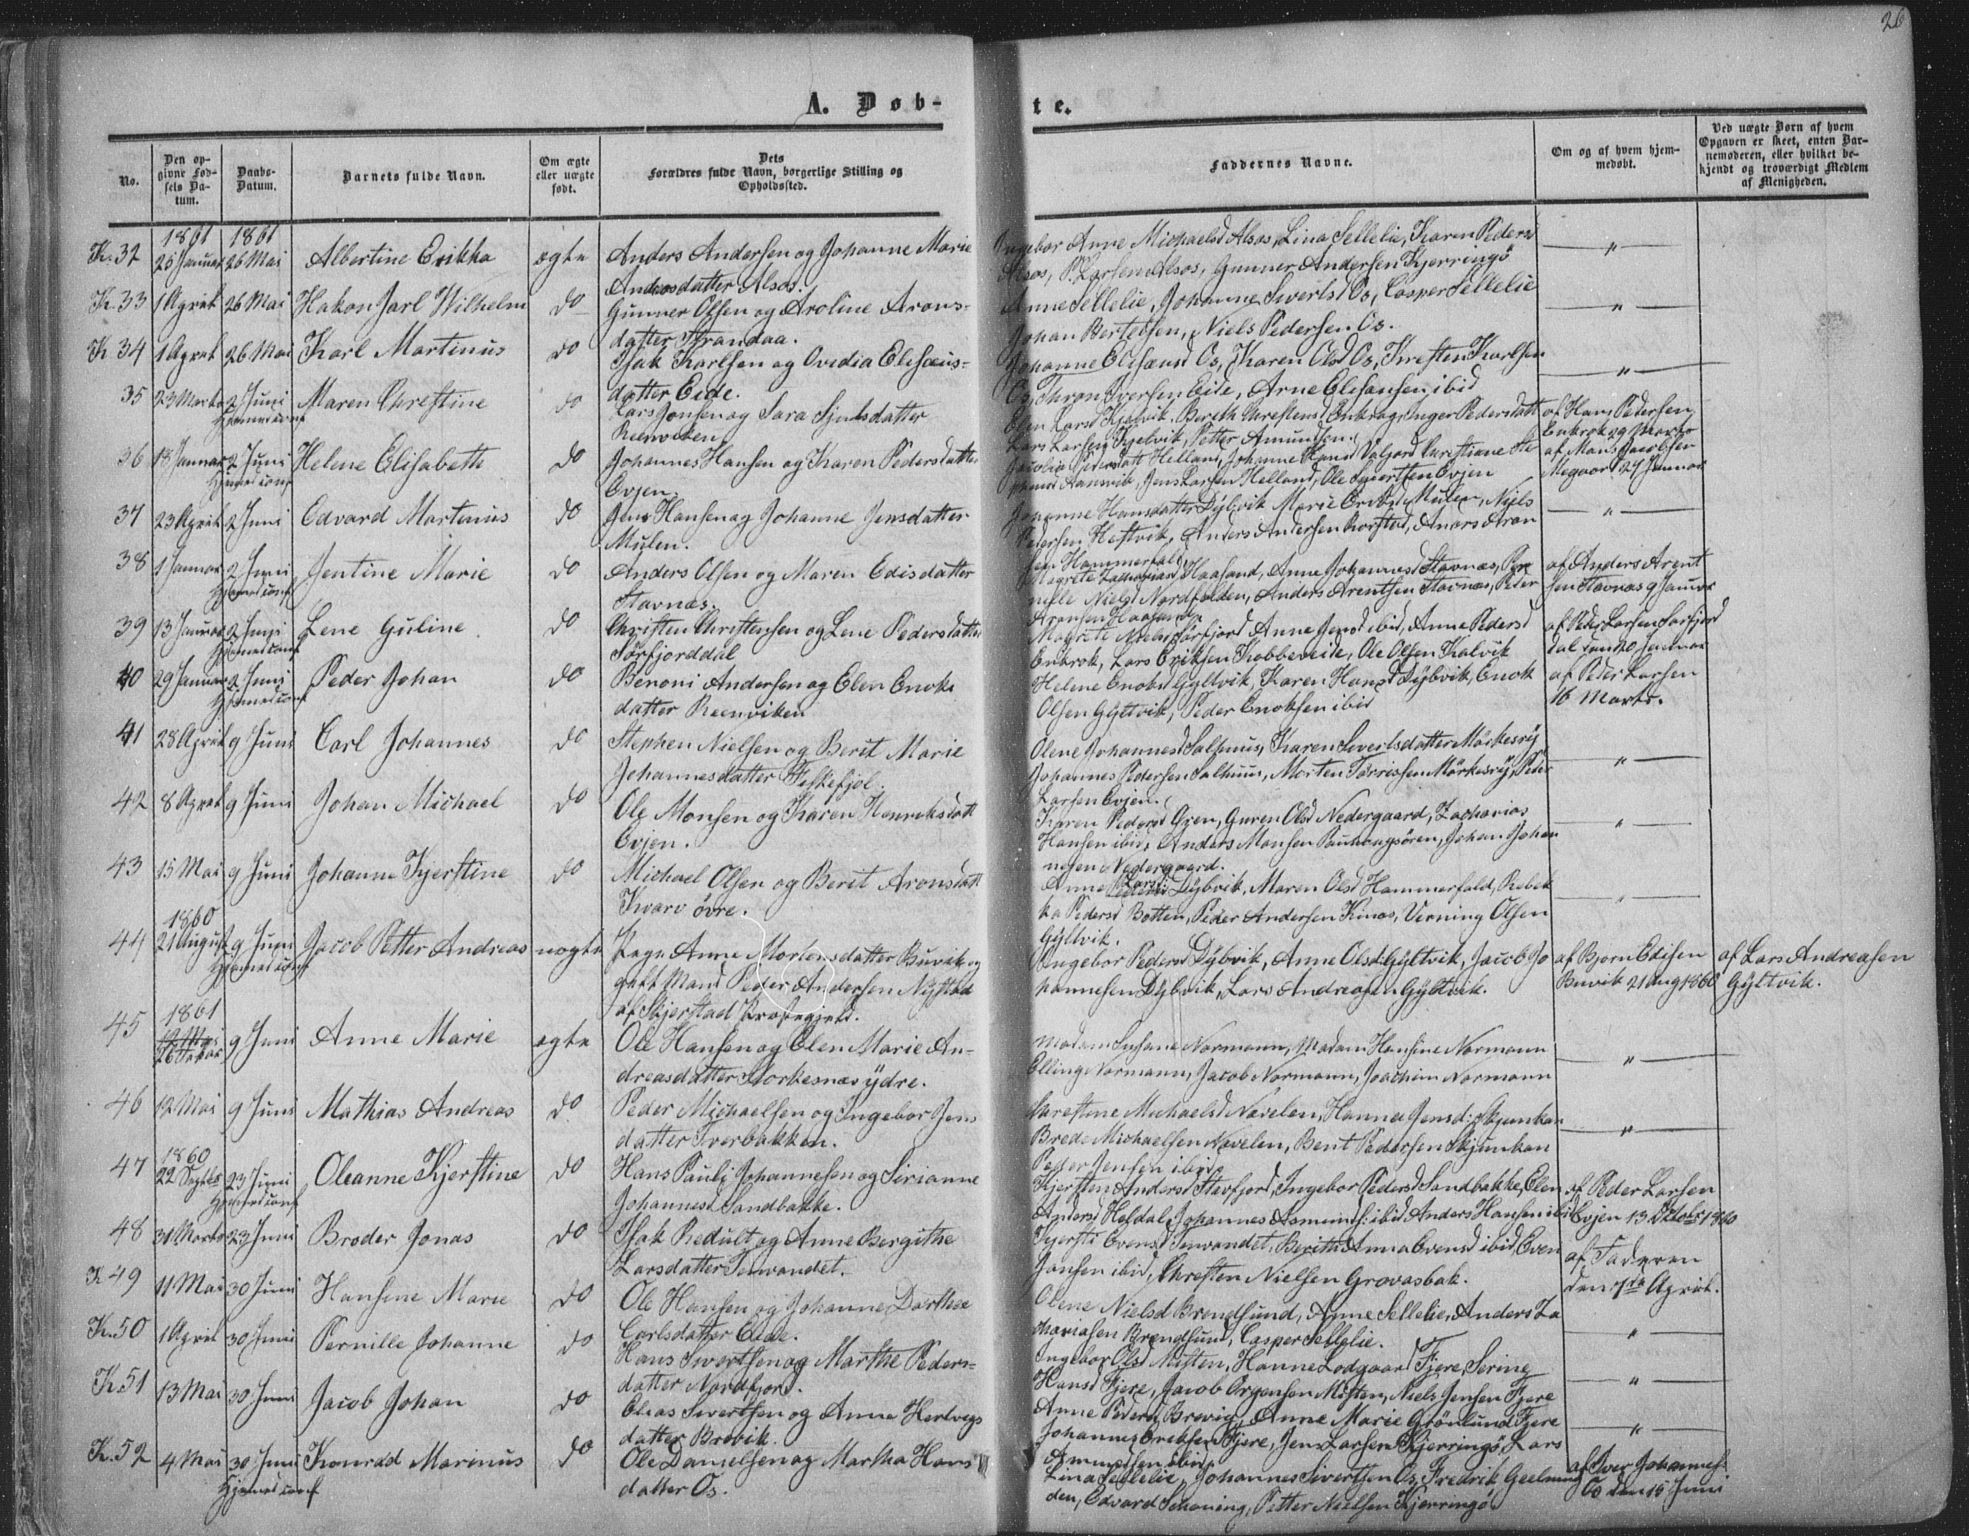 26
A. Døb-
te.
No.
Den op-
givne Fød-
sels Da-
tum.
Daabs-
Datum.
Barnets fulde Navn.
Om ægte
eller uægte
født.
Dets
Forældres fulde Navn, borgerlige Stilling og
Opholdssted.
Faddernes Navne.
Om og af hvem hjem-
medøbt.
Ved uægte Børn af hvem
Opgaven er skeet, enten Bar-
nemoderen, eller hvilket be-
kjendt og troværdigt Medlem
af Menigheden.
1861 1861
K. 32 25 Januar 26 Mai Albertine Erikka ægte Anders Andersen og Johanne Marie
Andersdatter Alsos.
Ingebor Anne Michaelsd Alsos, Lina Sellelie, Karen Pedersd
Alsos, P. Larsen Alsos, Gunner Andersen Kjerringö
K. 33 1 April 26 Mai Hakon Jarl Wilhelm do Gunner Olsen og Aroline Arons-
datter Strandaa.
Anne Sellelie, Johanne Sivertsd Os, Casper Sellelie
Johan Bertelsen, Niels Pedersen Os.
K 34 1 April 26 Mai Karl Martinus do Isak Karlsen og Ovidia Elisæus-
datter Eide.
Johanne Elisæusd Os, Karen Olsd Os, Kresten Karlsen
Os, Thron Iversen Eide, Arne Elisæusen ibid
35 23 Marts 2 Juni Maren Chrestine do Lars Jonsen og Sara Sjulsdatter
Hjemed conf Reenviken
Elen Larsd Kjelvik, Bereth Chrestensd Enkrog, Inger Pedersdatt
Lars Larsen Kjelvik, Petter Amundsen
af Hans Pedersen
Enkrok 29 Marts
36 18 Januar 2 Juni Helene Elisabeth do Johannes Hansen og Karen Pedersdatter
Hjemed conf Evjen.
Jacobia Petersdatt Helland, Johanne Hansd Valjord Chrestiane Ste
Aansvik, Jens Larsen Helland, Ole Sivertsen Evjen
af Mons Jacobsen
Megaar 27 Januar
37 23 April 2 Juni Edvard Martinus do Jens Hansen og Johanne Jensdatter
Mulen.
Johanne Hansdatter Dybvik Marie Mulen, Niels
Pedersen Hestvik, Anders Andersen Anders Aron
sen Hammerfald
38 1 Januar 2 Juni Jentine Marie do Anders Olsen og Maren Edisdatter
Hjemed conf Stavnæs.
Magrete Zachariasd Haasand, Anne Johannesd Stavnæs, Per
nelle Nielsd Nordfolden, Anders Arentsen Stavnæs, Peder
Aronsen Haasand
af Anders Arent
sen Stavnæs 9 Januar
39 13 Januar 2 Juni Lene Guline. do Christen Christensen og Lene Pedersdatter
Hjemed conf Sörfjorddal
Magrete Nielsd Sörfjord Anne Jensd ibid, Anne Pedersd
Enkrok, Lars Eriksen Kobbeveide, Ole Olsen Kalvik
af Peder Larsen Sörfjord
dal den 20 Januar
40 29 Januar 2 Juni Peder Johan do Benoni Andersen og Elen Enoks
Hjemed conf datter Reenviken
Helene Enoksd Gyltvik, Karen Hansd Dybvik, Enok
Olsen Gyltvik, Peder Enoksen ibid
af Peder Larsen
16 Marts.
41 28 April 9 Juni Carl Johannes do Stephen Nielsen og Berit Marie
Johannesdatter Fiskefjöl.
Olene Johannesd Salhuus, Karen Sivertsdatter Mörkesvig
Johannes Pedersen Salhuus, Morten Tørrissen Mörkesvig, Peder
Larsen Evjen.
42 8 April 9 Juni Johan Michael do Ole Monsen og Karen Henriksdatt
Evjen.
Karen Pedersd Evjen, Guren Olsd Nedergaard, Zacharias
Hansen ibid, Anders Monsen Johan Johan
nesen Nedergaard.
43 15 Mai 9 Juni Johanne Kjerstine do Michael Olsen og Berit Aronsdatt
Kvarv övre.
Anne Larsd: Dybvik, Maren Olsd Hammerfald, Rebek
ka Pedersd Botten, Peder Andersen Kinæs, Verning Olsen
Gyltvik.
1860
44 21 August 9 Juni Jacob Petter Andreas uægte Pige Anne Mortensdatter Buvik og
Hjemed conf gift Mand Peder Andersen Nystad
af Skjerstad Præstegjeld.
Ingebor Pedersd Dybvik, Anne Olsd Gyltvik, Jacob Jo
hannesen Dybvik, Lars Andreasen Gyltvik.
af Bjorn Edisen
Buvik 21 Aug 1860
af Lars Andreasen
Gyltvik.
1861
45 9 Juni Anne Marie ægte Ole Hansen og Elen Marie An-
dreasdatter Storkesnæs ydre.
Madam Susane Normann, Madam Hansine Normann
Elling Normann, Jacob Normann, Joachim Normann
46 12 Mai 9 Juni Mathias Andreas do Peder Michaelsen og Ingebor Jens
datter Tverbakken.
Chrestine Michaelsd Navelen, Hanna Jensd: Skjunkan
Brede Michaelsen Navelen, Berit Pedersen Skjunkan
Petter Jensen ibid
1860
47 22 Septbr 23 Juni Oleanne Kjerstine do Hans Paul Johannesen og Sirianne
Hjemed conf Johannesd Sandbakke.
Kjersten Andersd Stavfjord, Ingebor Pedersd Sandbakke, Elen
Andersd Heldal, Johannes Asmunds: ibid Anders Hansen ibid
af Peder Larsen
Evjen 13 Oktobr 1860
48 31 Marts 23 Juni Broder Jonas do Isak Redult og Anne Bergithe
Larsdatter Servandet.
Kjersti Evensd Servandet, Berith Anna Evensd ibid Even
Jonsen ibid, Chresten Nielsen Grovasbak.
af Faderen
den 7de April.
K 49 11 Mai 30 Juni Hansine Marie do Ole Hansen og Johanne Dorthea
Carlsdatter Eide.
Olene Nielsd Brendsund, Anne Sellelie, Anders Za
chariasen Brendsund, Casper Sellelie.
K. 50 1 April 30 Juni Pernille Johanne do Hans Sivertsen og Marthe Peders-
datter Nordfjord.
Ingebor Olsd Misten, Hanne Lodgaard Fjere, Serine
Hansd Fjere, Jacob Örgensen Misten, Niels Jensen Fjere
K. 51 13 Mai 30 Juni Jacob Johan do Elias Sivertsen og Anne Hertvigs
datter Brevik.
Anne Pedersd Brevig, Anne Marie Grönlund Fjere
Johannes Eriksen Fjere, Jens Larsen Kjerringö, Lars
Amundsen ibid
K. 52 4 Mai 30 Juni Konrad Marinus do Ole Danielsen og Martha Hans
Hjemed conf datter Os.
Lina Sellelie, Johannes Sivertsen Os, Fredrik Geelmuy
den, Edvard Schöning, Petter Nielsen Kjerringö
af Iver Johannes:
Os den 15 Juni